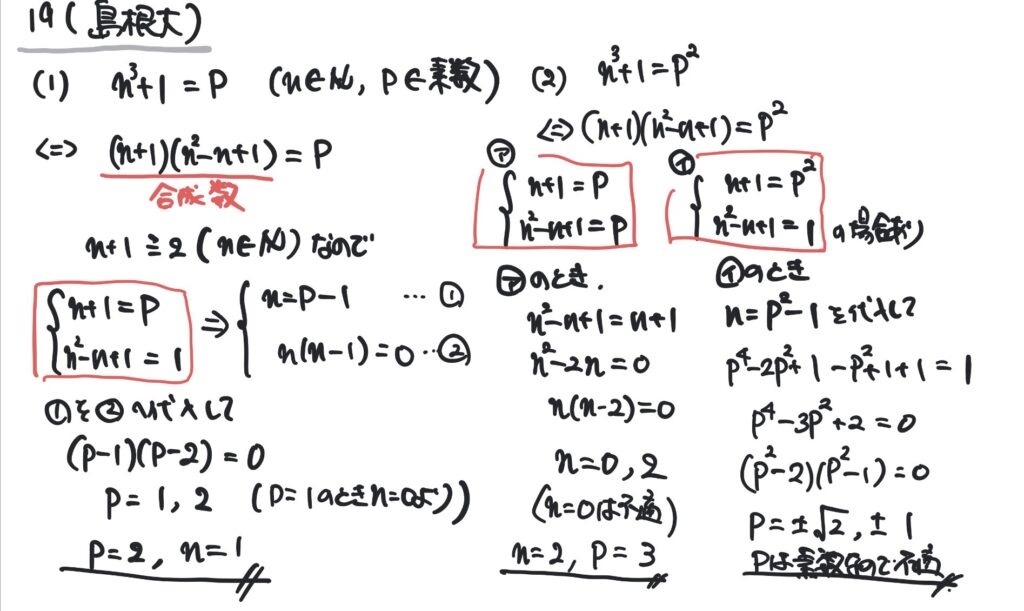 19 (島根大)
(1) n³+1 = P (n∈ℕ, P∈素数)
<=> (n+1)(n²-n+1) = P
合成数
n+1 ≧ 2 (n∈ℕ) なので
{ n+1 = P
n²-n+1 = 1
⇒ { n=P-1 … ①
n(n-1)=0 … ②
①を②へ代入して
(P-1)(P-2) = 0
P = 1, 2 (P=1のときn=0より)
P=2, n=1
(2) n³+1=P²
<=> (n+1)(n²-n+1)=P²
㋐ { n+1 = P
n²-n+1 = P
㋑ { n+1 = P²
n²-n+1 = 1 の場合あり
㋐のとき.
n²-n+1 = n+1
n²-2n=0
n(n-2)=0
n=0, 2
(n=0は不適)
n=2, P=3
㋑のとき
n=P²-1を代入して
P⁴-2P²+1-P²+1+1 = 1
P⁴-3P²+2 = 0
(P²-2)(P²-1)=0
P=±√2, ±1
Pは素数なので不適